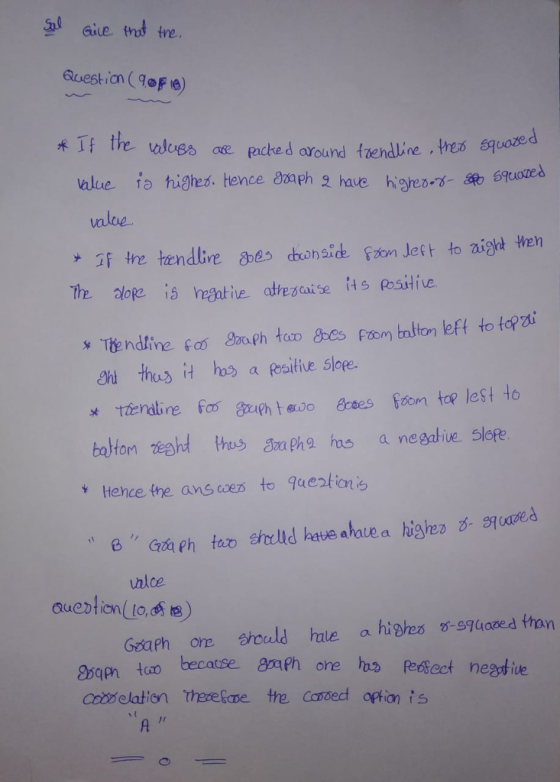 Sol Give that the.
Question (9 of 18)
* If the values are packed around trendline, then squared
value is higher. Hence graph 2 have higher r- squared
value
* If the trendline goes downside from left to right then
The slope is negative otherwise its positive
* Trendline for graph two goes from bottom left to top ri
ght thus it has a positive slope.
* Trendline for graph two goes from top left to
bottom right thus graph 2 has a negative slope.
* Hence the answer to question is
" B " Graph two should have a have a higher r- squared
value
question (10, of 18)
Graph one should have a higher r-squared than
graph two because graph one has perfect negative
correlation Therefore the correct option is
"A"